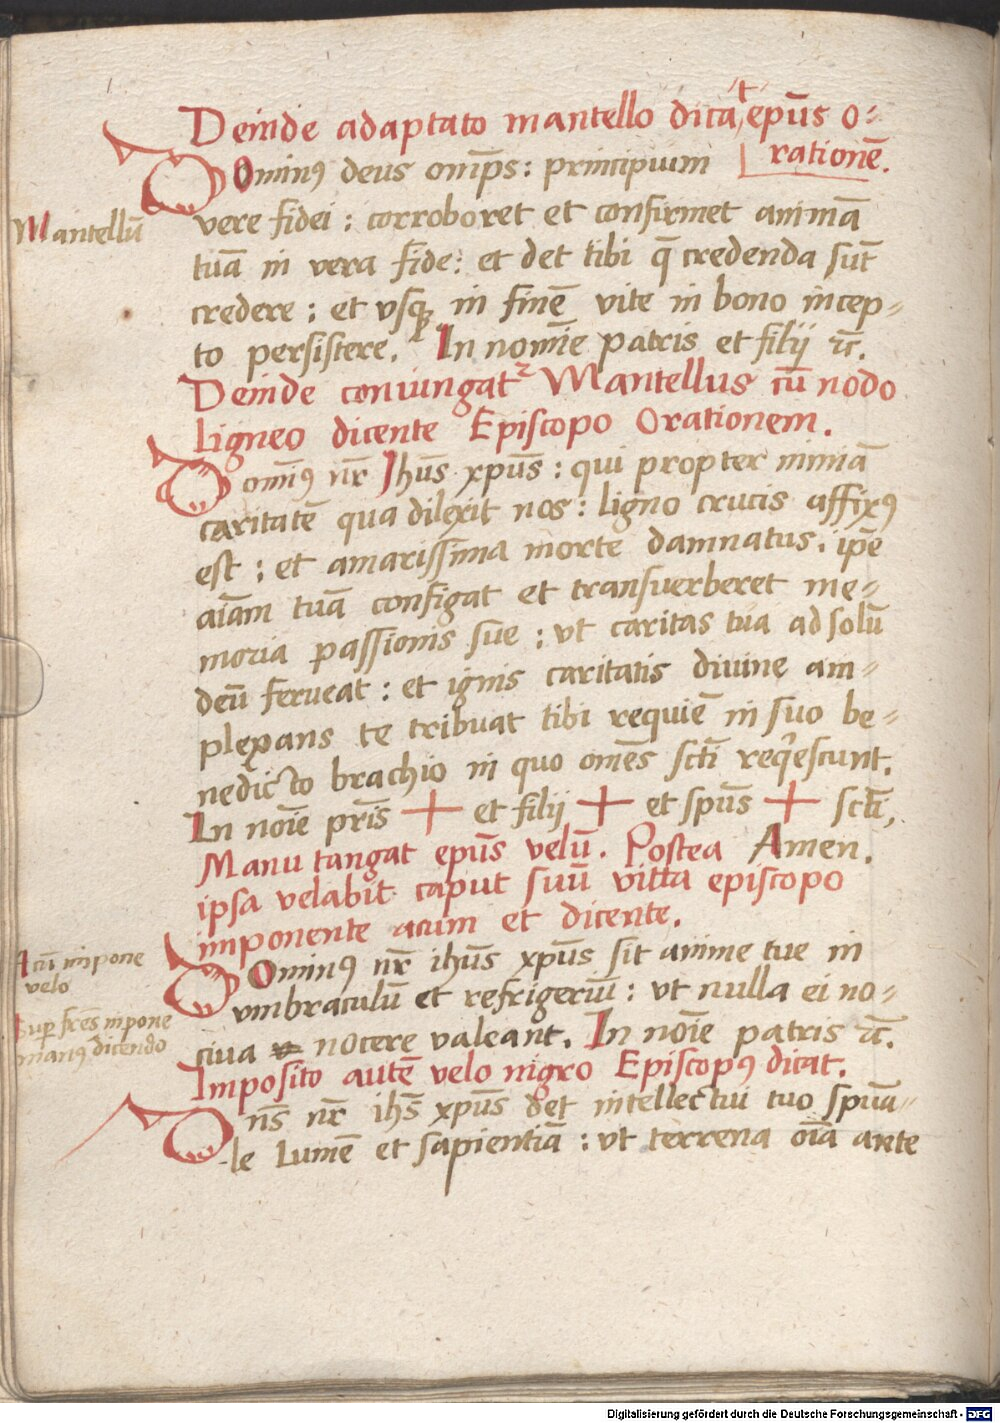 Deinde adaptato mantello dicat epūs o-
rationē.
Dominꝰ deus omīps: principium
Mantellū
vere fidei: corroboret et confirmet animā
tuā in vera fide: et det tibi q̄ credenda sūt
credere: et usqꝫ in finē vite in bono incep-
to persistere. In nomīe patris et filij ⁊c̄.
Deinde coniungatᷣ Mantellus cū nodo
ligneo dicente Episcopo Orationem.
Domīꝰ nr̄ Jhūs xpūs: qui propter nimiā
caritatē qua dilexit nos: ligno crucis affixꝰ
est: et amarissīma morte damnatus. ip̄e
aīam tuā configat et transverberet me-
moria passionis sue: ut caritas tua ad solū
deū ferveat: et ignis caritatis divine am-
plexans te tribuat tibi requiē in suo be-
nedicto brachio in quo omēs sctī reqͥescunt.
In noīe prīs + et filij + et spūs + sctī,
Manu tangat epūs velū. Postea Amen.
ipsa velabit caput suū vitta episcopo
imponente acum et dicente.
Acū impone
velo
Dominꝰ nr̄ ihūs xpūs sit anime tue in
umbraculū et refrigeriū: ut nulla ei no-
Super frēs inpone
manꝰ dicendo
civa nocere valeant. In noīe patris ⁊c̄.
Imposito autē velo nigro Episcopꝰ dicat.
Dn̄s nr̄ ihs̄ xpūs det intellectui tuo spūa-
le lumē et sapientiā: ut terrena oīa ante
Digitalisierung gefördert durch die Deutsche Forschungsgemeinschaft - DFG